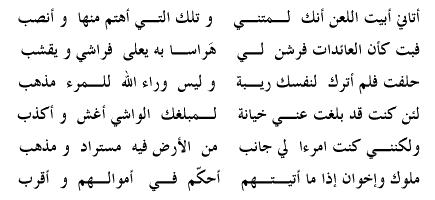 أتاني أبيت اللعن أنك لمتني و تلك التي أهتم منها و أنصب
فبت كأن العائدات فرشن لي هَراسا به يعلى فراشي و يقشب
حلفت فلم أترك لنفسك ريبة و ليس وراء الله للمرء مذهب
لئن كنت قد بلغت عني خيانة لمبلغك الواشي أغش و أكذب
ولكنني كنت امرءا لي جانب من الأرض فيه مستراد و مذهب
ملوك وإخوان إذا ما أتيتهم أحكّم في أموالهم و أقرب